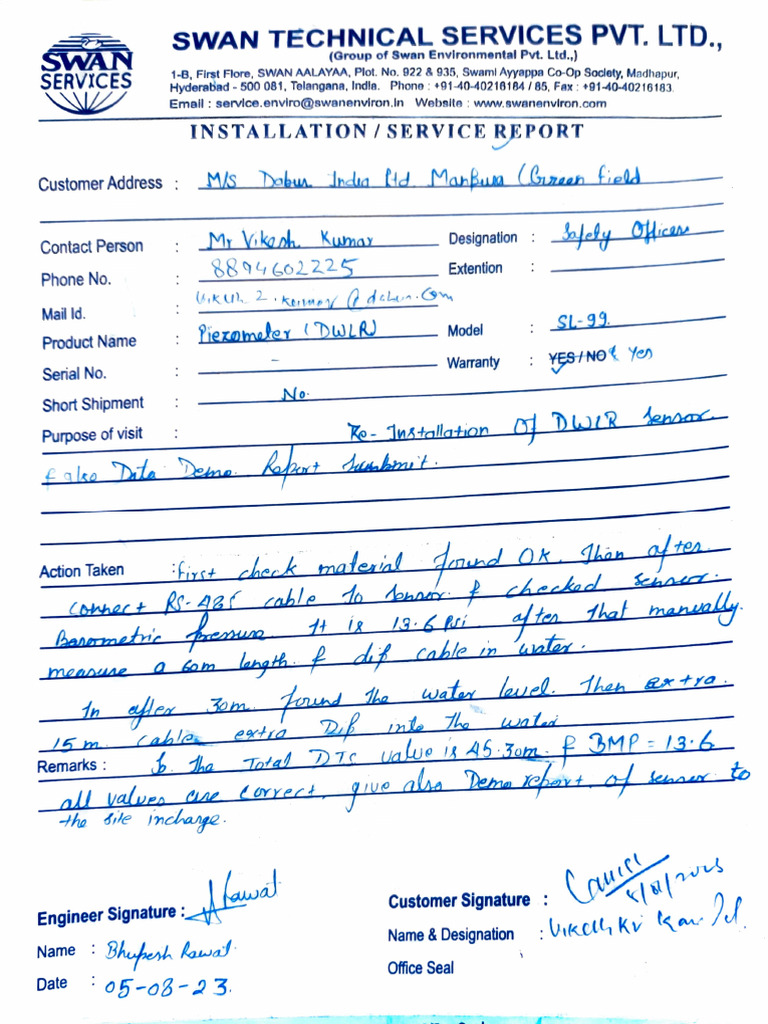 SWAN SERVICES
SWAN TECHNICAL SERVICES PVT. LTD.,
(Group of Swan Environmental Pvt. Ltd.,)
1-B, First Flore, SWAN AALAYAA, Plot. No. 922 & 935, Swami Ayyappa Co-Op Society, Madhapur,
Hyderabad - 500 081, Telangana, India. Phone : +91-40-40216184 / 85, Fax : +91-40-40216183.
Email : service.enviro@swanenviron.in Website : www.swanenviron.com
INSTALLATION / SERVICE REPORT
Customer Address : M/S Dabur India Ltd. (Green field
Contact Person : Mr Vikesh Kumar Designation : Safety Officer
Phone No. : 8894602225 Extention :
Mail Id. :
Product Name : Piezometer (DWLR) Model : SL-99.
Serial No. : - Warranty : YES / NO Yes
Short Shipment : No.
Purpose of visit : Re-Installation of DWLR sensor.
& also Data Demo Report Sumbmit.
Action Taken : first check material found OK. Then after
connect RS-485 cable to sensor & checked sensor.
Barometric pressure It is 13.6 PSi. after that manually.
measure a 60m length. & dip cable in water.
In after 30m. found the water level. Then extra.
15 m. cable extra Dip into the water
Remarks : So the Total DTS value is 45.30m. & BMP = 13.6
all values are correct, give also Demo report. of sensor to
the site incharge.
Engineer Signature : Rawat
Customer Signature : 5/8/2023
Name : Bhupesh Rawat.
Name & Designation :
Date : 05-08-23.
Office Seal